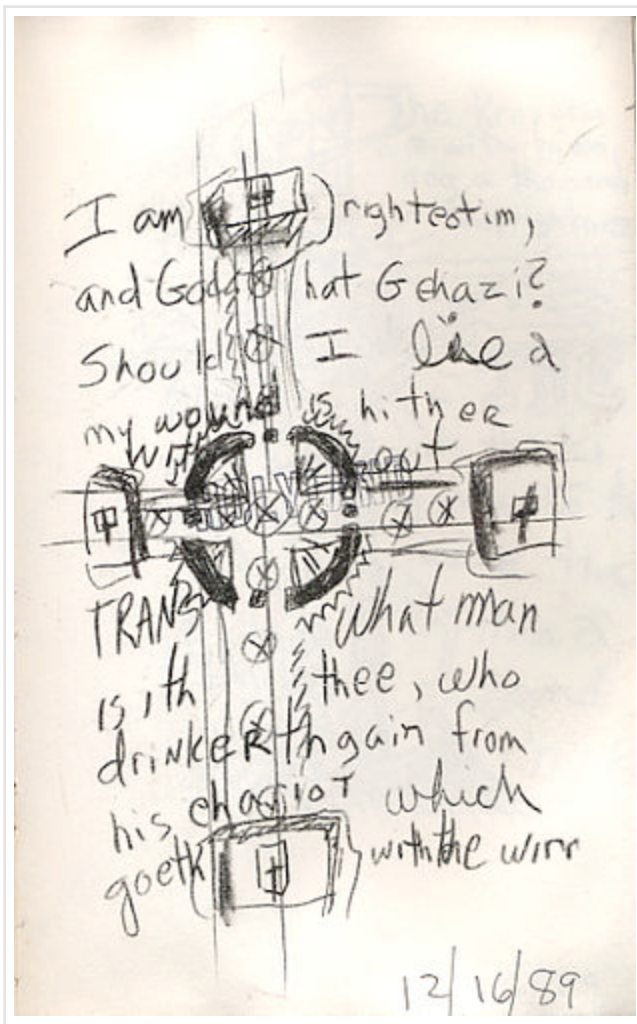 I am righteotim,
and God hat Gehazi?
Should I
my wound is hither
with out
TRANS what man
is ith thee, who
drinkerth gain from
his chariot which
goeth with the winr
12/16/89